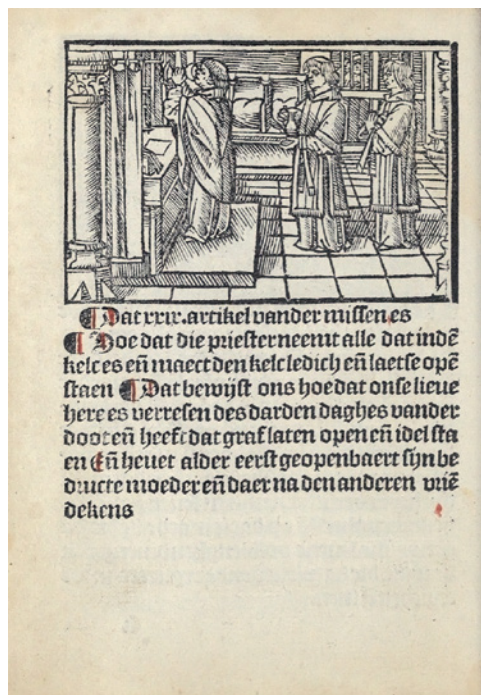 ¶ Dat xxix. artikel vander missen es
¶ Hoe dat die priester neemt alle dat indē
kelc es eñ maect den kelc ledich eñ laetse opē
staen ¶ Dat bewijst ons hoe dat onse lieue
here es verresen des darden daghes vander
doot eñ heeft dat graf laten open eñ idel sta
en Eñ heuet alder eerst geopenbaert sijn be
dructe moeder eñ daer na den anderen vriē
dekens